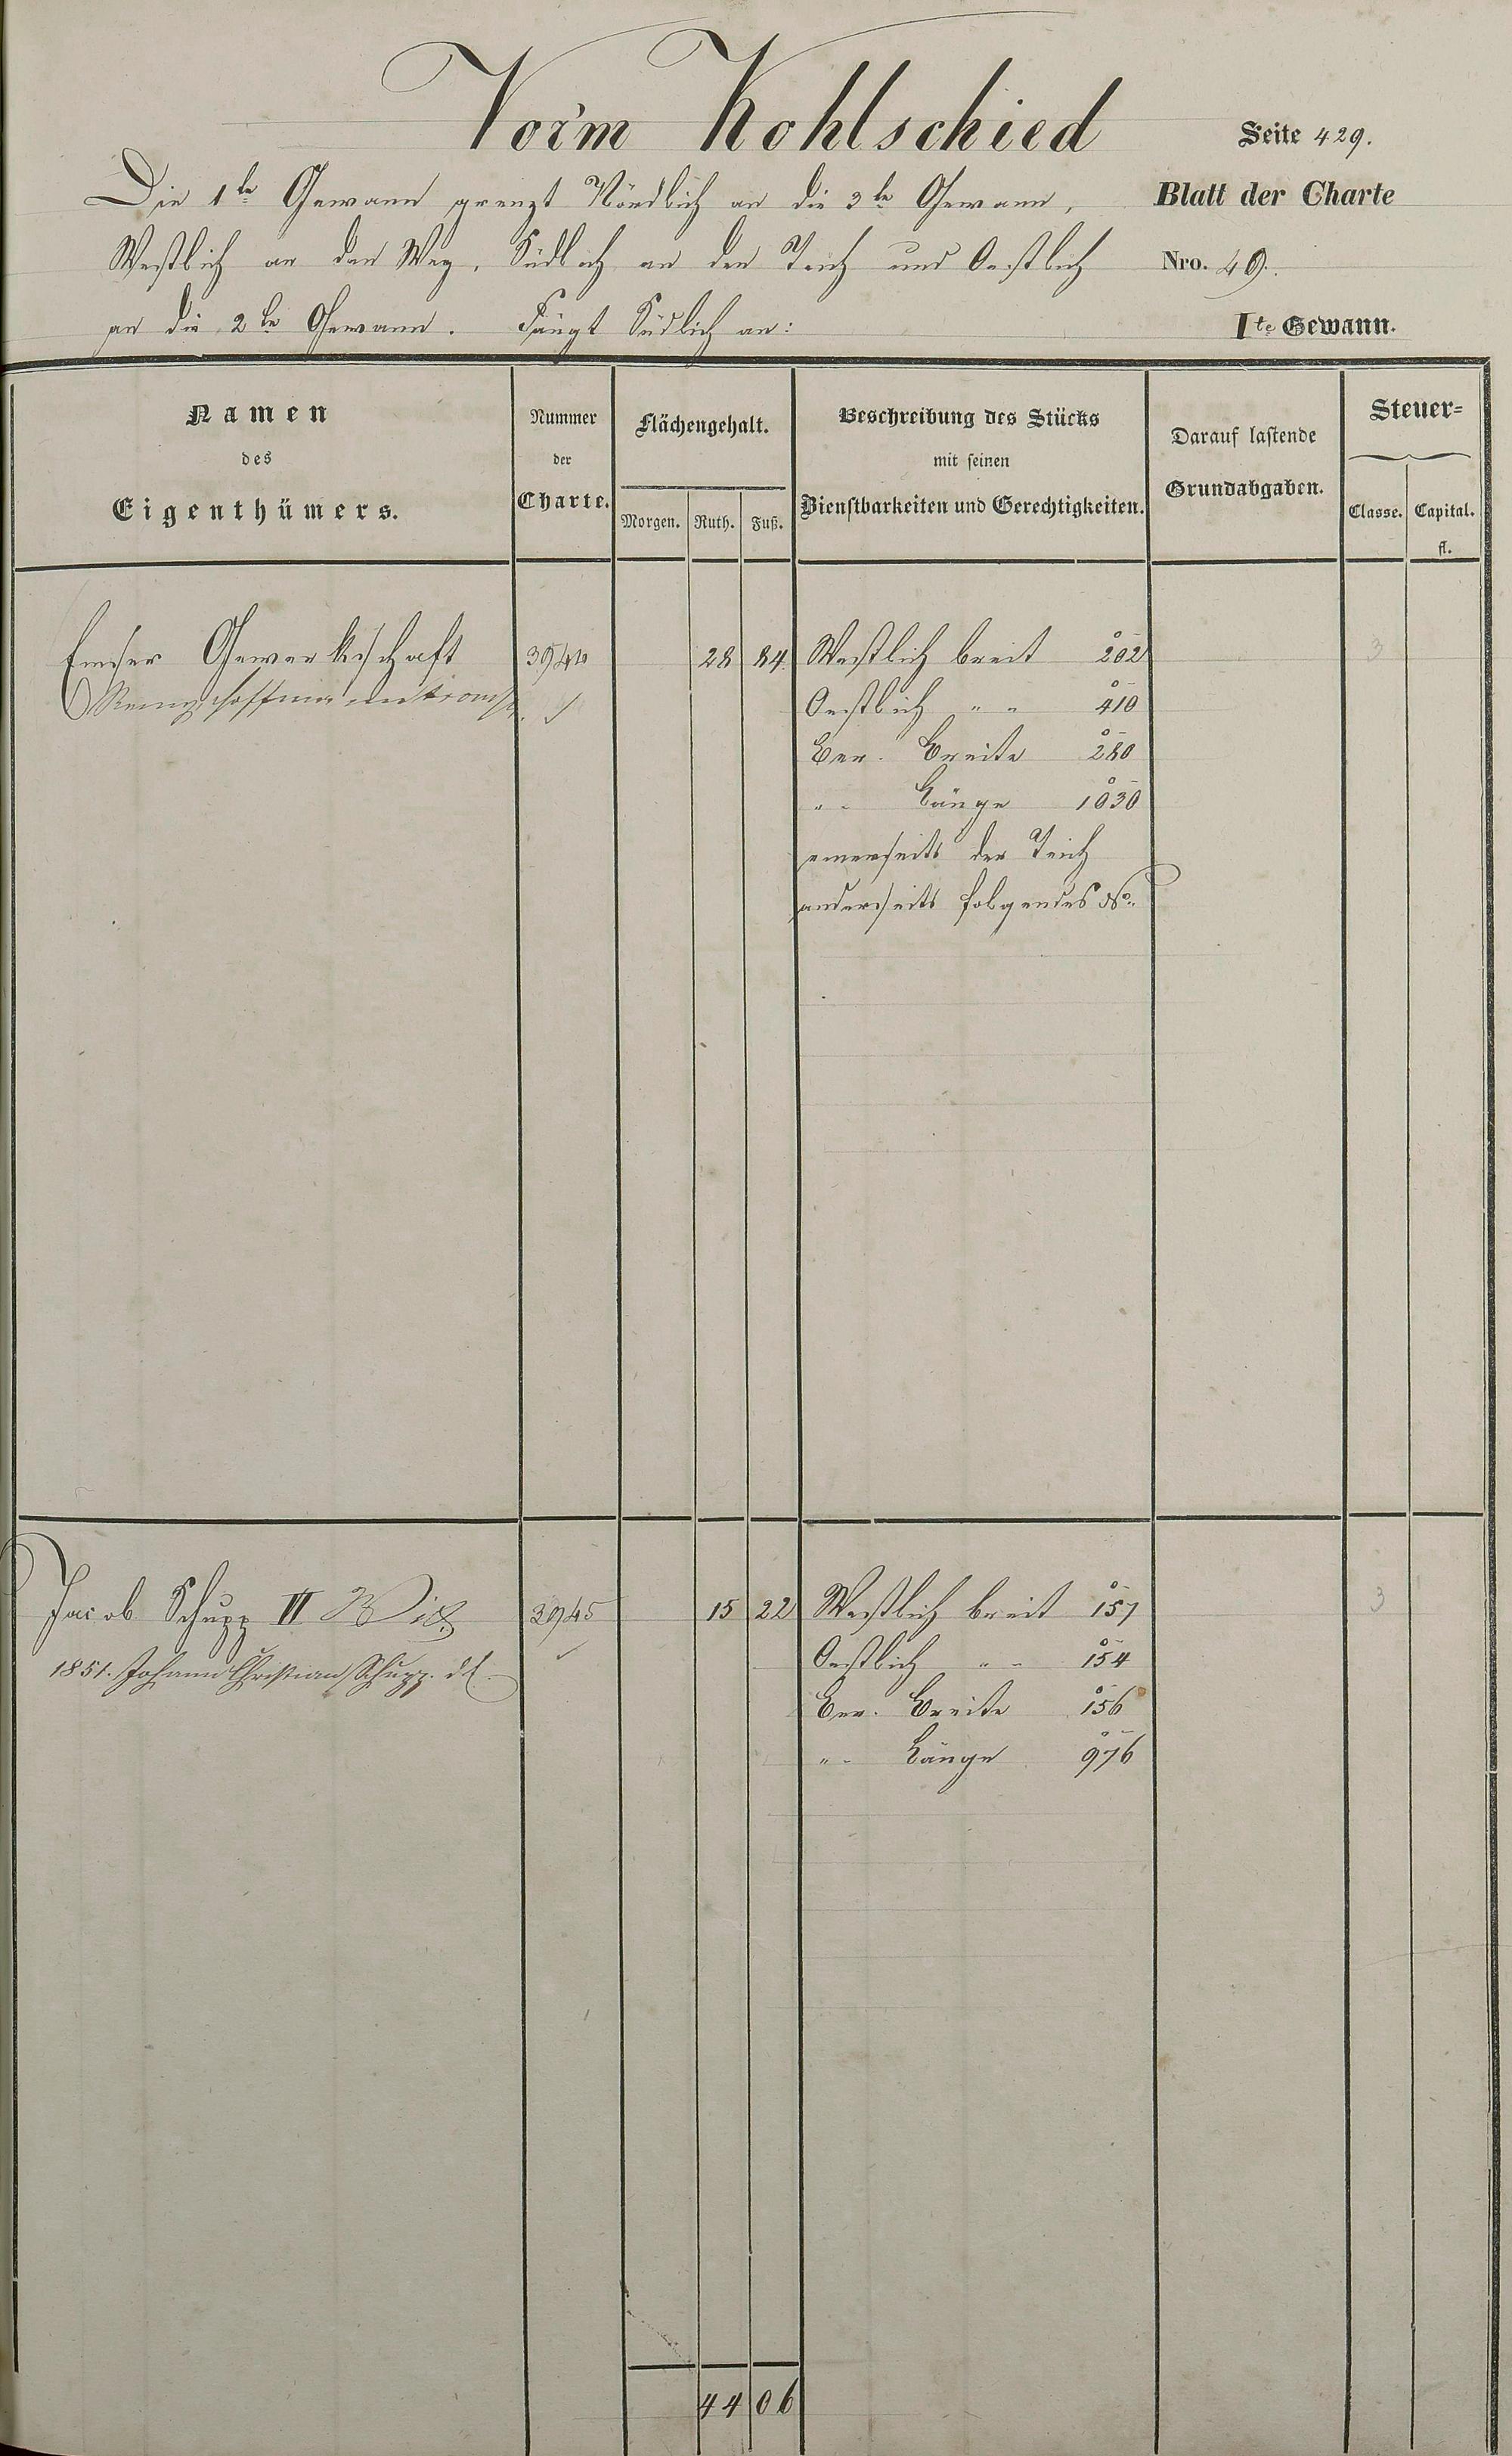 Vor'm Kohlschied
Seite 429.
Die 1te Gewann grenzt Nördlich an die 3te Gewann,
Blatt der Charte
Westlich an den Weg, Südlich an den Teich und Oestlich
Nro. 49.
an die 2te Gewann. Fängt Südlich an:
Ite Gewann.
Namen
des
Eigenthümers.
Nummer
der
Charte.
Flächengehalt.
Morgen. Ruth. Fuß.
Beschreibung des Stücks
mit seinen
Dienstbarkeiten und Gerechtigkeiten.
Darauf lastende
Grundabgaben.
Steuer=
Classe. Capital.
fl.
Emser Gewerkschaft 3944 28 84 Westlich breit 202 3
Oestlich " " 410
Ber. Breite 280
" - Länge 1030
einerseits der Teich
anderseits folgendes No.
Jacob Schupp VI 3945 15 22 Westlich breit 157 3
1851. Johann Christian Schupp. dt.
Oestlich " - 154
Ber. Breite 156
" - Länge 976
44 06